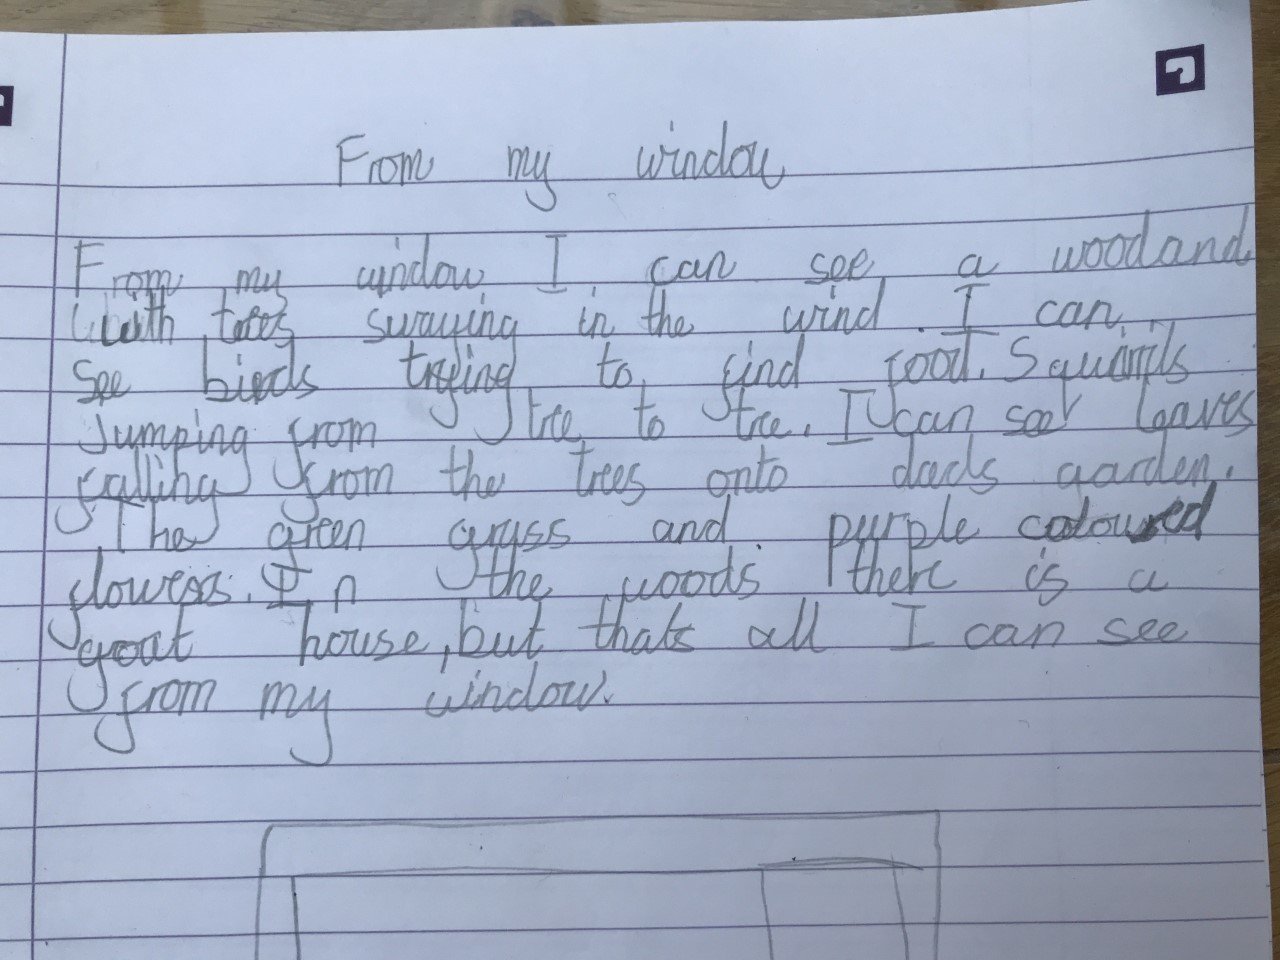 From my window
From my window I can see a woodand
with trees swaying in the wind. I can
see birds trying to find food. Squirrils
Jumping from tree to tree. I can see leaves
falling from the trees onto dads garden.
The green gryss and purple coloured
flowers. In the woods there is a
goat house, but thats all I can see
from my window.